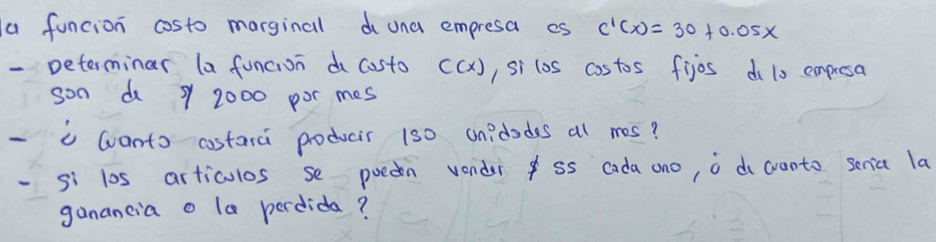 la función costo marginal de una empresa es c'(x)= 30 + 0.05x
- Determinar la función de costo C(x), si los costos fijos de la empresa
son de $ 2000 por mes
- ¿ Cuanto costará producir 150 unidades al mes?
- si los artículos se pueden vender $ 55 cada uno, ¿ de cuanto seria la
ganancia o la perdida?